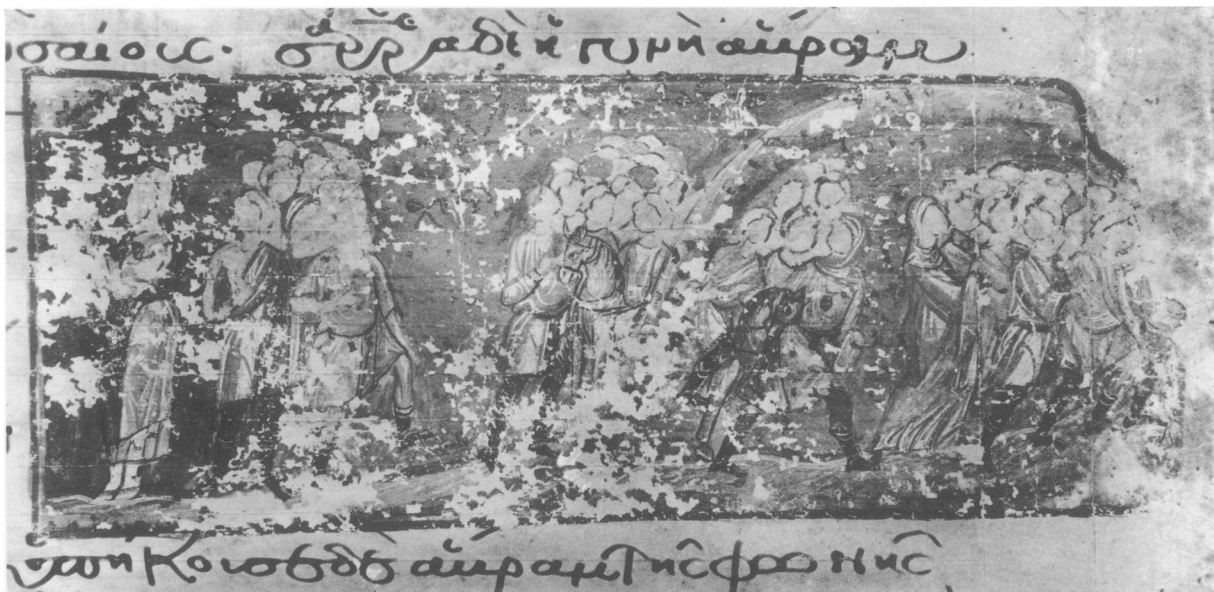 σαίους· σάρρα δὲ ἡ γυνὴ ἅβραμ
ὑπήκουσε δὲ ἅβραμ τῆς φωνῆς